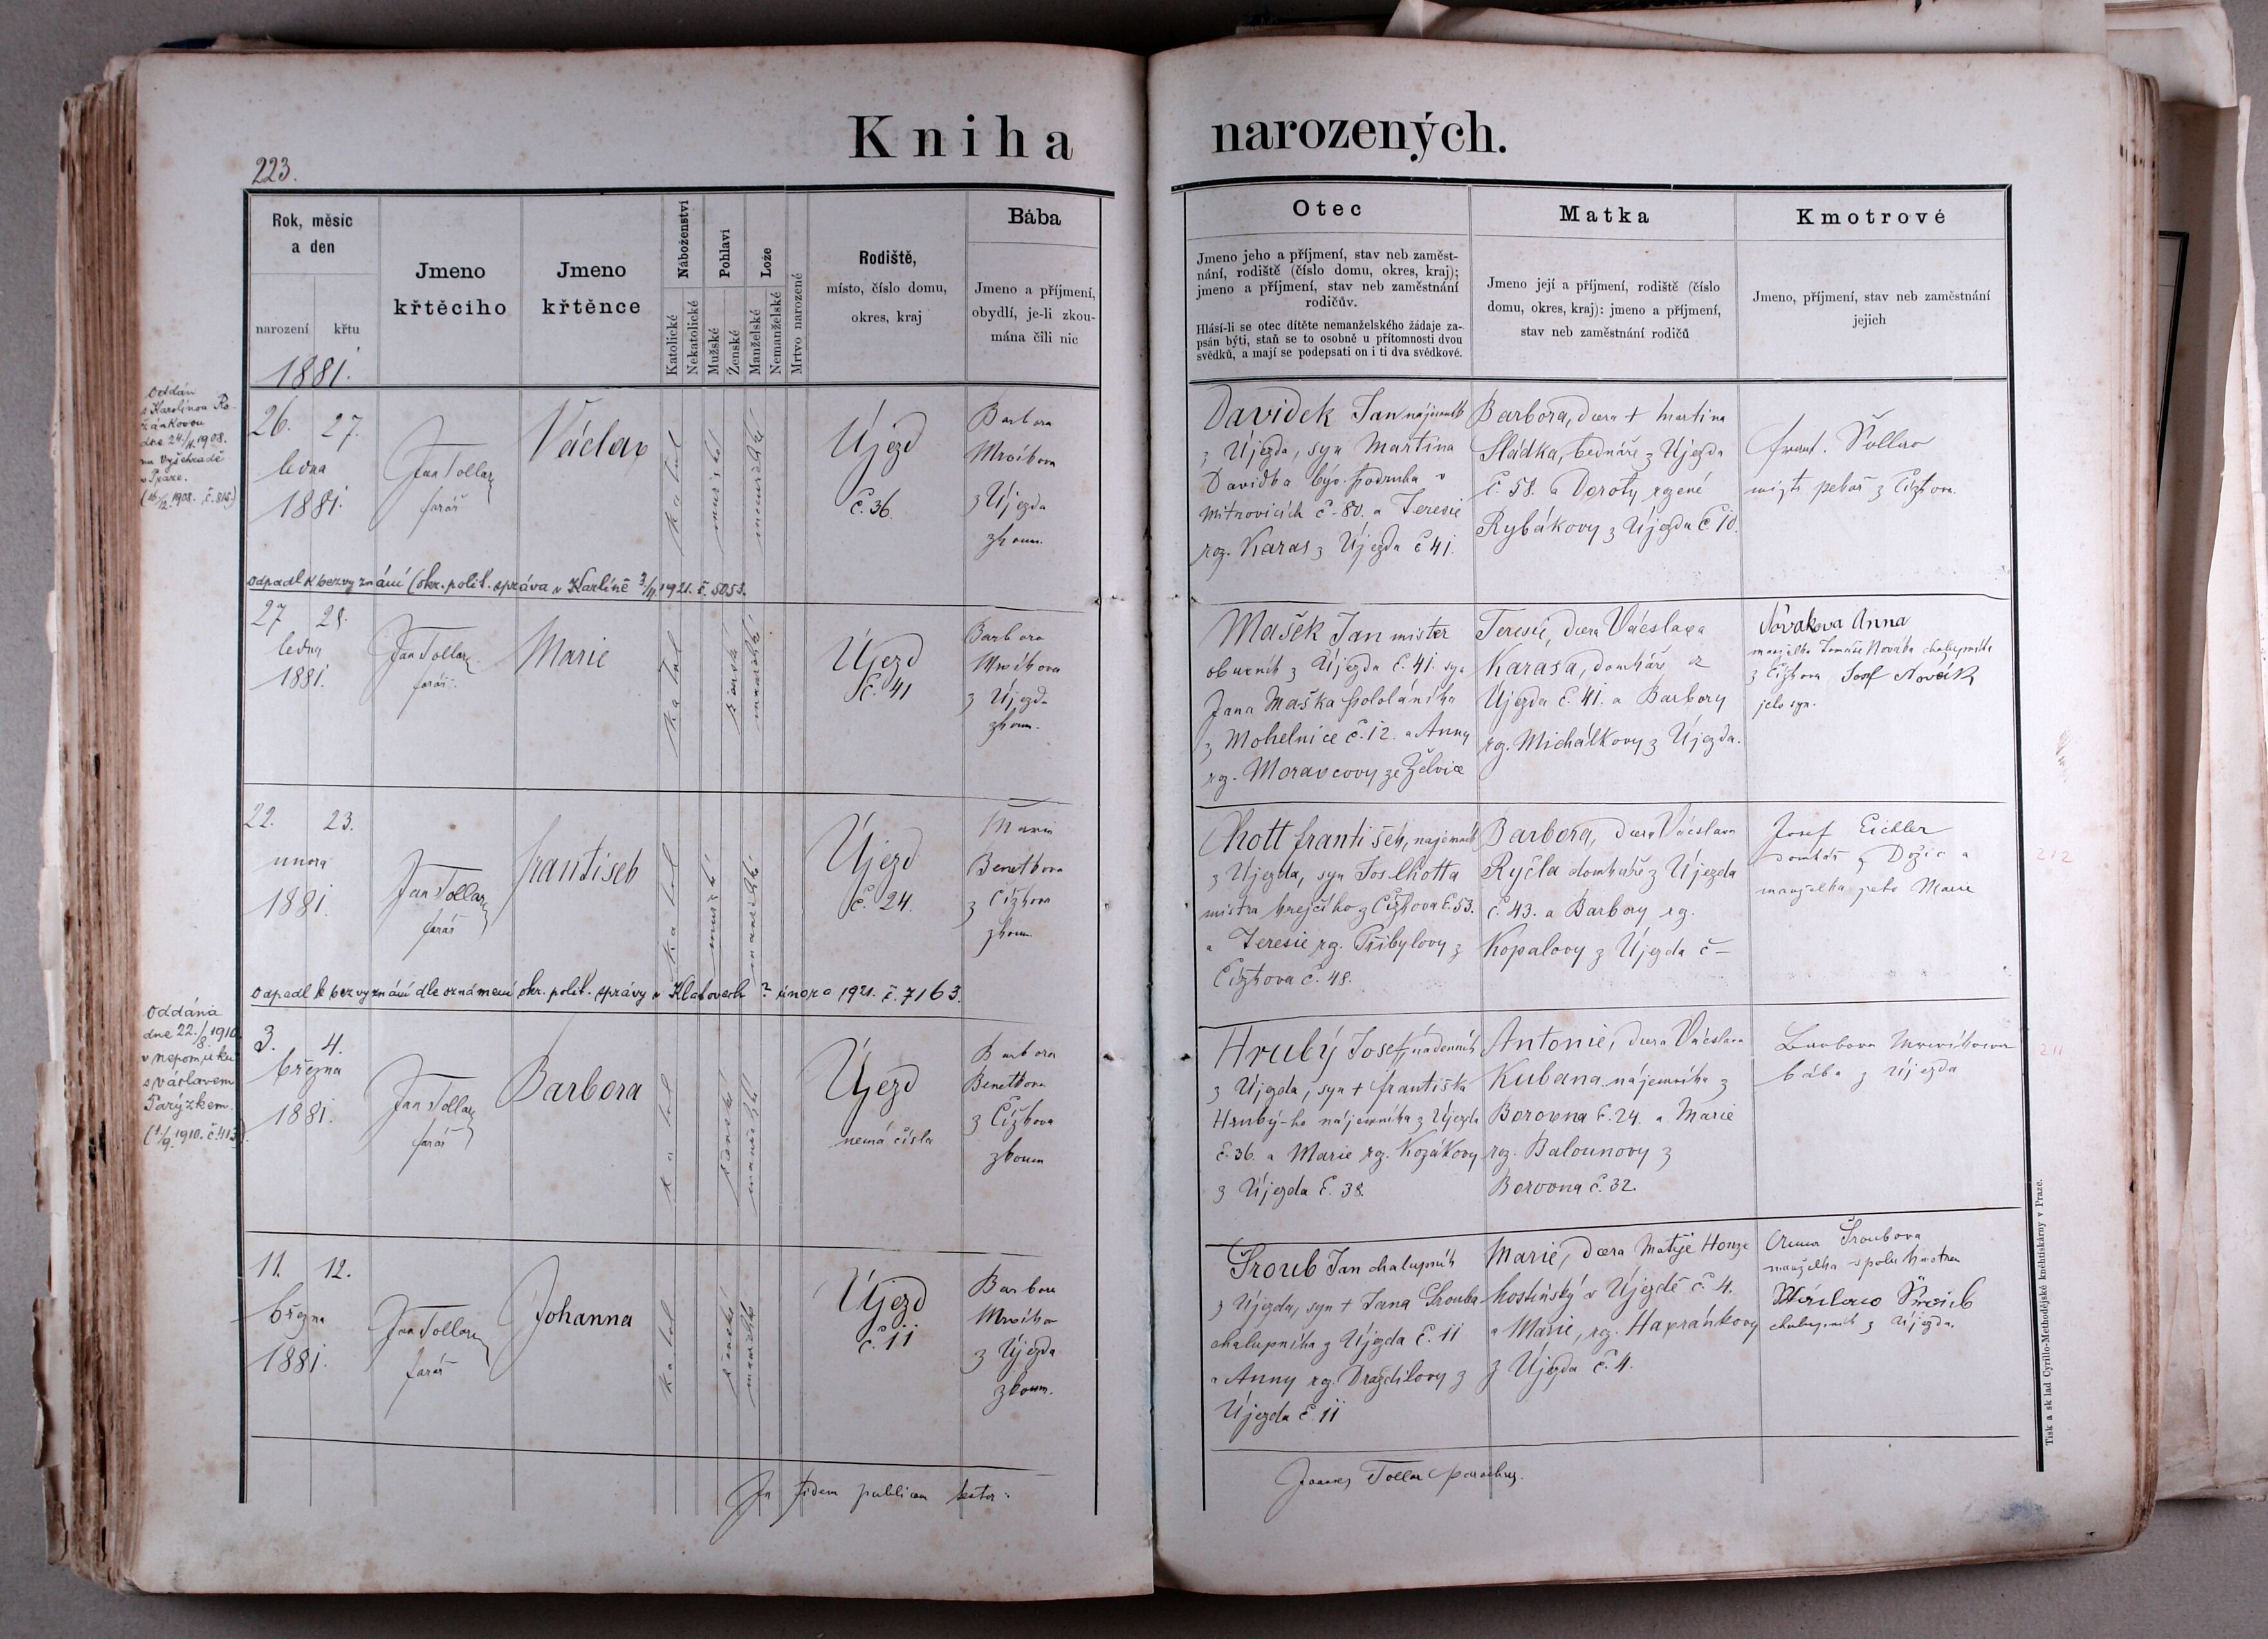 Kniha narozených.
223.
Rok, měsíc
a den
narození
křtu
Jmeno
křtěcího
Jmeno
křtěnce
Náboženství
Katolické
Nekatolické
Pohlaví
Mužské
Ženské
Lože
Manželské
Nemanželské
Mrtvo narozené
Rodiště,
místo, číslo domu,
okres, kraj
Bába
Jmeno a příjmení,
obydlí, je-li zkou-
mána čili nic
Otec
Jmeno jeho a příjmení, stav neb zaměst-
nání, rodiště (číslo domu, okres, kraj);
jmeno a příjmení, stav neb zaměstnání
rodičův.
Hlásí-li se otec dítěte nemanželského žádaje za-
psán býti, staň se to osobně u přítomnosti dvou
svědků, a mají se podepsati on i ti dva svědkové.
Matka
Jmeno její a příjmení, rodiště (číslo
domu, okres, kraj): jmeno a příjmení,
stav neb zaměstnání rodičů
Kmotrové
Jmeno, příjmení, stav neb zaměstnání
jejich
1881.
Oddán
s Karolínou
dne 24./11. 1908.
na Vyšehradě
v Praze.
26. 27.
ledna
1881.
Jan Tollar
farář
Václav
katol
mužské
manželské
Újezd
č. 36.
Barbora
z Újezda
zkoum.
Davídek Jan nájemník
z Újezda, syn Martina
Davídka býv. podruha v
Mitrovicích č. 80. a Teresie
roz. Karas z Újezda č 41.
Barbora, dcera † Martina
Sládka, bednáře z Újezda
č. 58. a Doroty rozené
Rybákovy z Újezda č 10.
Frant.
pekař z Čížkova.
odpadl k bezvyznání (okr. polit. správa v Karlíně 3/11. 1921. č. 5053.
27 28.
ledna
1881.
Jan Tollar
farář
Marie
katol
ženské
manželské
Újezd
č. 41
Barbora
z Újezda
zkoum.
Mašek Jan mister
obuvník z Újezda č. 41. syn
Jana Maška pololáníka
z Mohelnice č. 12. a Anny
roz. Moravcovy ze Želvic
Teresie, dcera Václava
Karasa, domkáře z
Újezda č. 41. a Barbory
roz. Michálkovy z Újezda.
Nováková Anna
manželka Tomáše Nováka chalupníka
z Čížkova Josef Novák
jeho syn.
22. 23.
února
1881.
Jan Tollar
farář
František
katol
mužské
manželské
Újezd
č. 24.
Marie
Benetkova
z Čížkova
zkoum.
Chott František, nájemník
z Újezda, syn Jos Chotta
mistra krejčího z Čížkova č. 53.
a Teresie roz. Přibylovy z
Čížkova č. 48.
Barbora, dcera Václava
Ryčla domkáře z Újezda
č. 43. a Barbory roz.
Kopalovy z Újezda č –
Josef Eichler
domkář z a
manželka jeho Marie
212
odpadl k bezvyznání dle oznámení okr. polit. správy v Klatovech ? února 1921. č. 7163.
Oddána
dne 22./8. 1910
v Nepomuku
s Václavem
Parýzkem.
(1/9. 1910. č. 413)
3. 4.
března
1881.
Jan Tollar
farář
Barbora
katol
ženské
manželské
Újezd
nemá čísla
Barbora
Benetkova
z Čížkova
zkoum
Hrubý Josef, nádenník
z Újezda, syn † Františka
Hrubý-ho nájemníka z Újezda
č. 36. a Marie roz. Kozákovy
z Újezda č. 38.
Antonie, dcera Václava
Kubana nájemníka z
Borovna č. 24. a Marie
roz. Balounovy z
Borovna č. 32.
Barbora
bába z Újezda
211
11. 12.
března
1881.
Jan Tollar
farář
Johanna
katol
ženské
manželské
Újezd
č. 11
Barbora
z Újezda
zkoum.
Šroub Jan chalupník
z Újezda, syn † Jana Šrouba
chalupníka z Újezda č. 11
a Anny roz. Draždilovy z
Újezda č. 11
Marie, dcera Matěje Honze
hostinský v Újezdě č. 4.
a Marie, roz. Havránkovy
z Újezda č. 4.
Anna Šroubova
manželka spolukmotra
Václav Šroub
chalupník z Újezda.
In fidem publicam testor:
Joannes Tollar parochus.
Tisk a sklad Cyrillo-Methodějské kněhtiskárny v Praze.